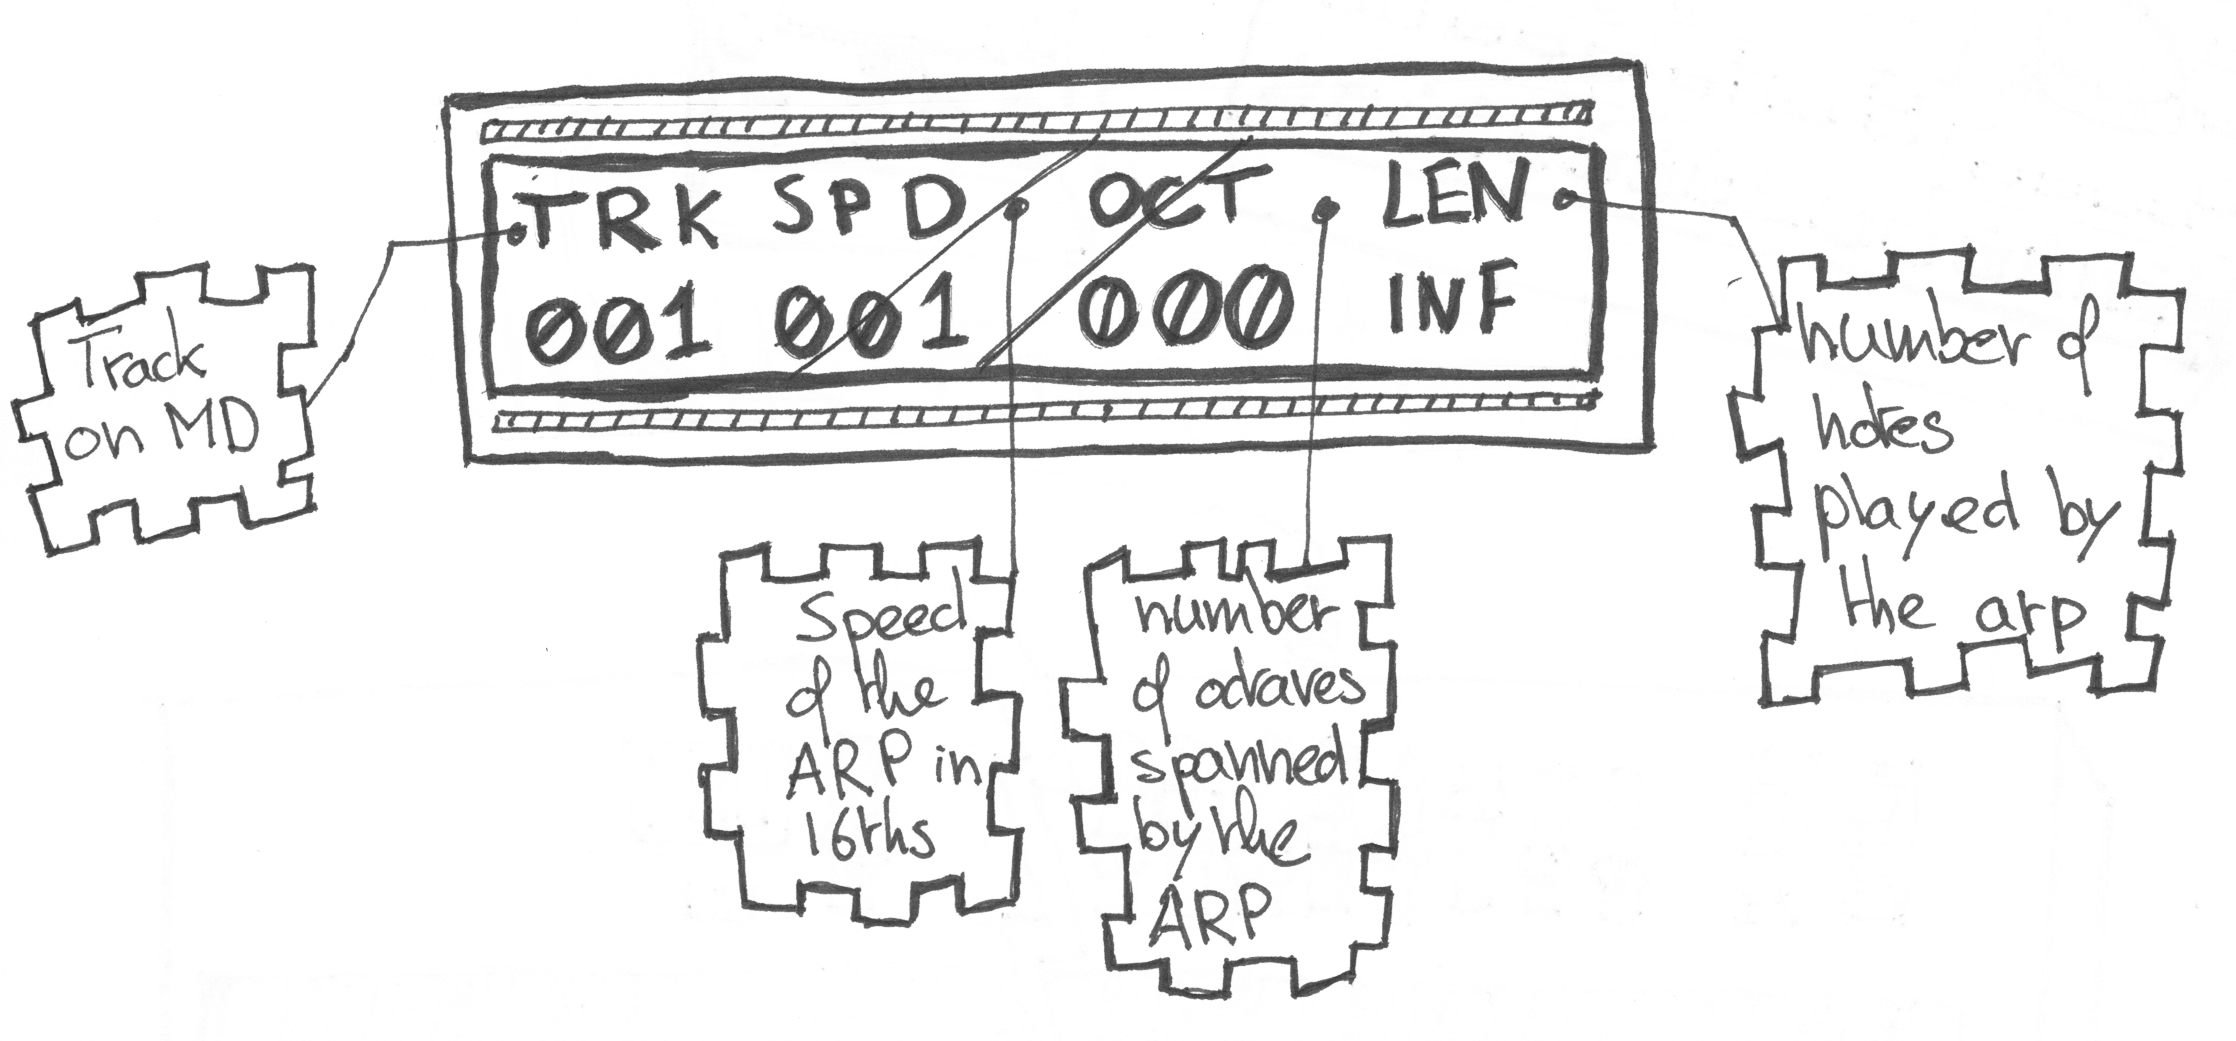 TRK SPD OCT LEN
001 001 000 INF
Track
on MD
Speed
of the
ARP in
16ths
number
of octaves
spanned
by the
ARP
number of
notes
played by
the arp